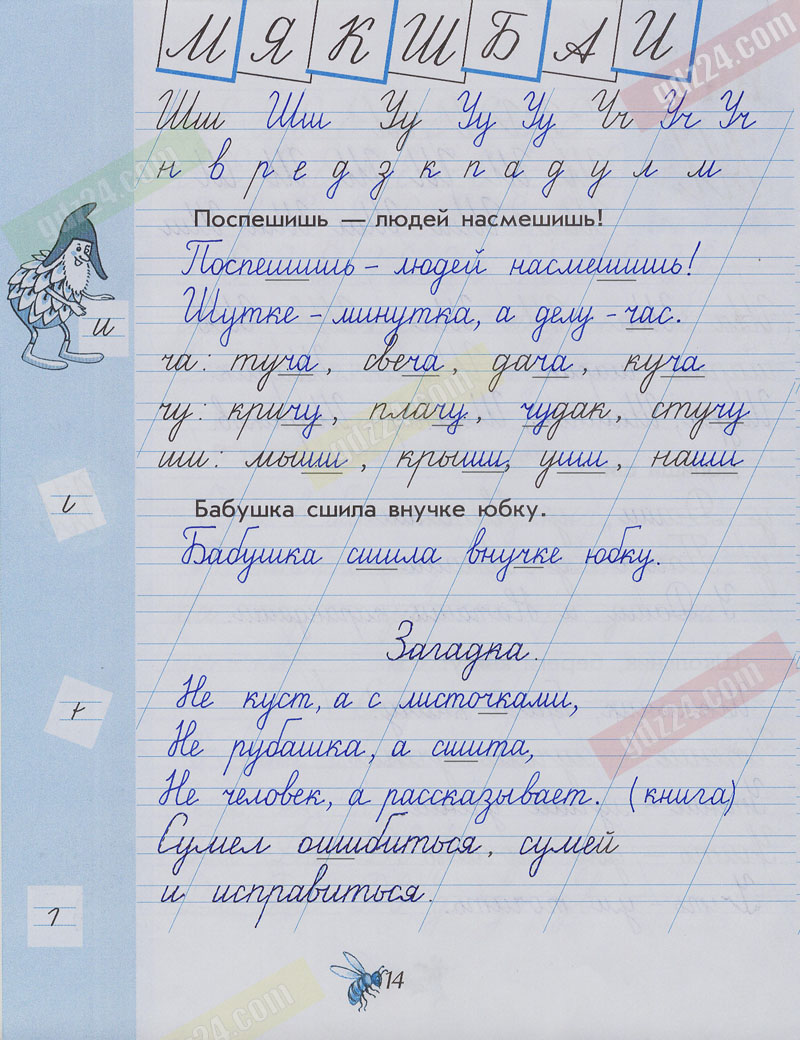 М Я К Ш Б А И
Шш Шш Уу Уу Уу Чч Чч Чч
н в р е д з к п а д у л м
Поспешишь — людей насмешишь!
Поспешишь – людей насмешишь!
Шутке – минутка, а делу – час.
и
ча: туча, свеча, дача, куча
чу: кричу, плачу, чудак, стучу
ши: мыши, крыши, уши, наши
Бабушка сшила внучке юбку.
Бабушка сшила внучке юбку.
Загадка.
Не куст, а с листочками,
Не рубашка, а сшита,
Не человек, а рассказывает. (книга)
Сумел ошибиться, сумей
и исправиться.
14
gdz24.com
gdz24.com
gdz24.com
gdz24.com